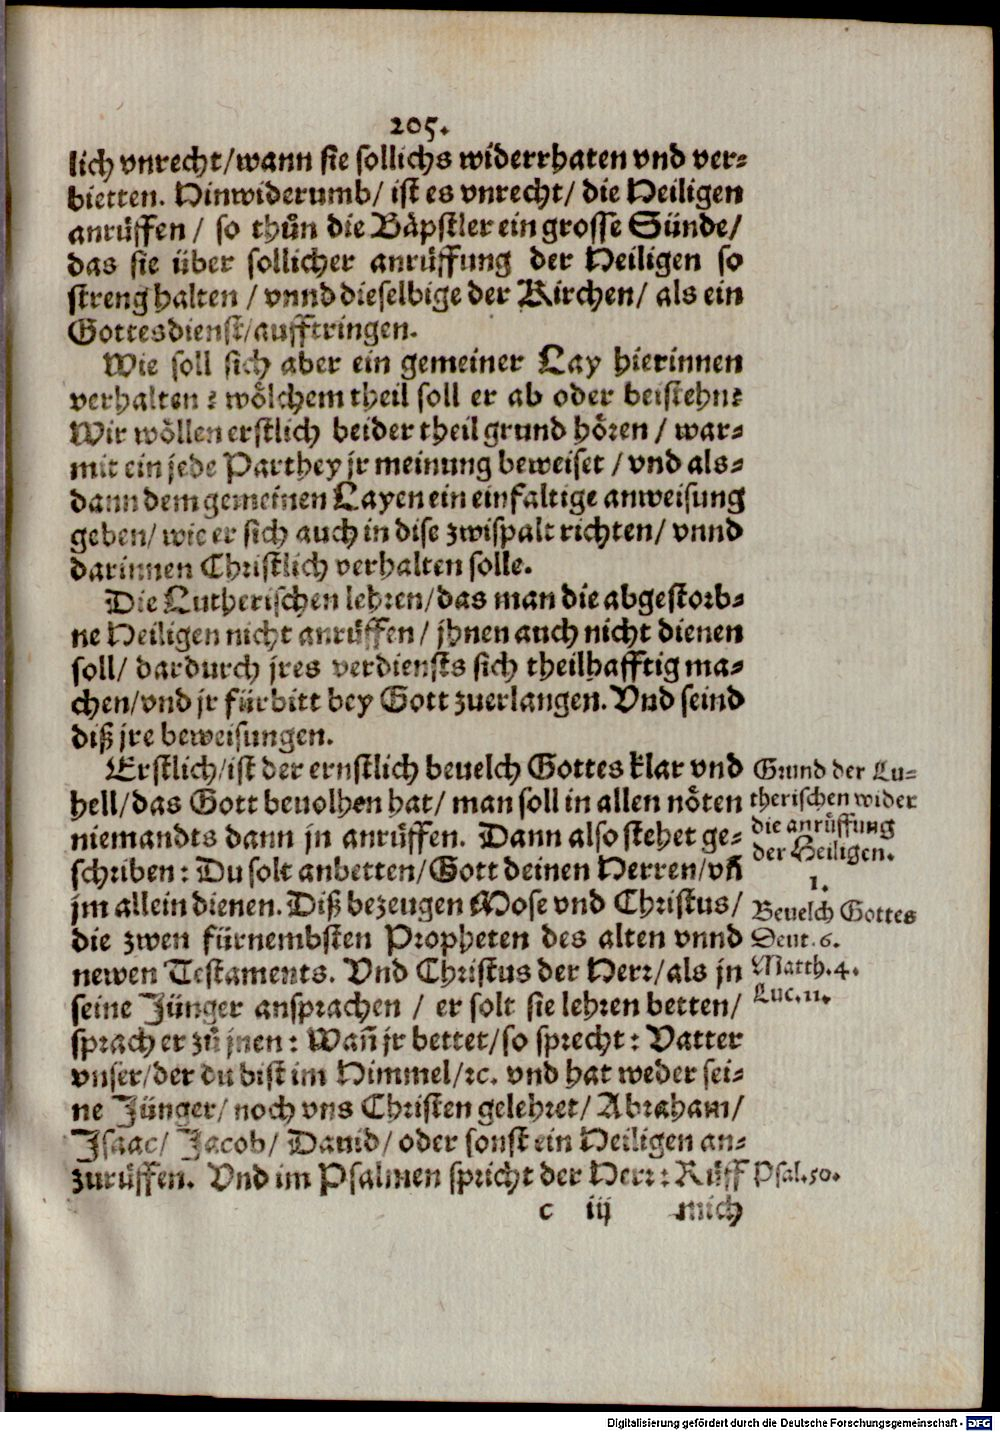 205.
lich vnrecht/wann sie sollichs widerrhaten vnd ver-
bietten. Hinwiderumb/ ist es vnrecht/ die Heiligen
anrůffen / so thůn die Bäpstler ein grosse Sünde/
das sie über sollicher anrůffung der Heiligen so
streng halten / vnnd dieselbige der Kirchen/ als ein
Gottesdienst/aufftringen.
Wie soll sich aber ein gemeiner Lay hierinnen
verhalten? wölchem theil soll er ab oder beistehn?
Wir wöllen erstlich beider theil grund hören / war-
mit ein jede Parthey jr meinung beweiset / vnd als-
dann dem gemeinen Layen ein einfaltige anweisung
geben/ wie er sich auch in dise zwispalt richten/ vnnd
darinnen Christlich verhalten solle.
Die Lutherischen lehren/das man die abgestorb-
ne Heiligen nicht anrůffen / jhnen auch nicht dienen
soll/ dardurch jres verdiensts sich theilhafftig ma-
chen/vnd jr fürbitt bey Gott zuerlangen. Vnd seind
diß jre beweisungen.
Erstlich/ist der ernstlich beuelch Gottes klar vnd
hell/das Gott beuolhen hat/ man soll in allen nöten
niemandts dann jn anrůffen. Dann also stehet ge-
schriben: Du solt anbetten/Gott deinen Herren/vñ
jm allein dienen. Diß bezeugen Mose vnd Christus/
die zwen fürnembsten Propheten des alten vnnd
newen Testaments. Vnd Christus der Herr/als jn
seine Jünger ansprachen / er solt sie lehren betten/
sprach er zů jnen: Wañ jr bettet/so sprecht: Vatter
vnser/der du bist im Himmel/ꝛc. vnd hat weder sei-
ne Jünger/ noch vns Christen gelehret/ Abraham/
Isaac/ Jacob/ Dauid/ oder sonst ein Heiligen an-
zurůffen. Vnd im Psalmen spricht der Herr: Růff
c iij mich
Grund der Lu-
therischen wider
die anrůffung
der Heiligen.
1.
Beuelch Gottes
Deut. 6.
Matth. 4.
Luc. 11.
Psal. 50.
Digitalisierung gefördert durch die Deutsche Forschungsgemeinschaft - DFG